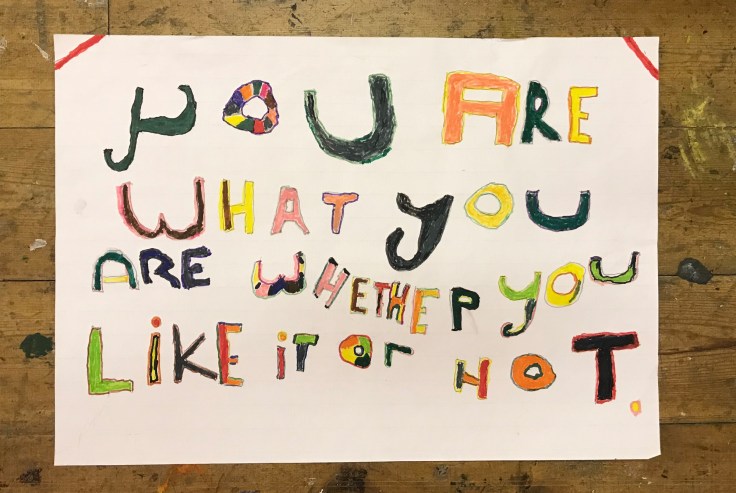 YOU ARE
WHAT YOU
ARE WHETHEP YOU
LIKE iT Or HOT.